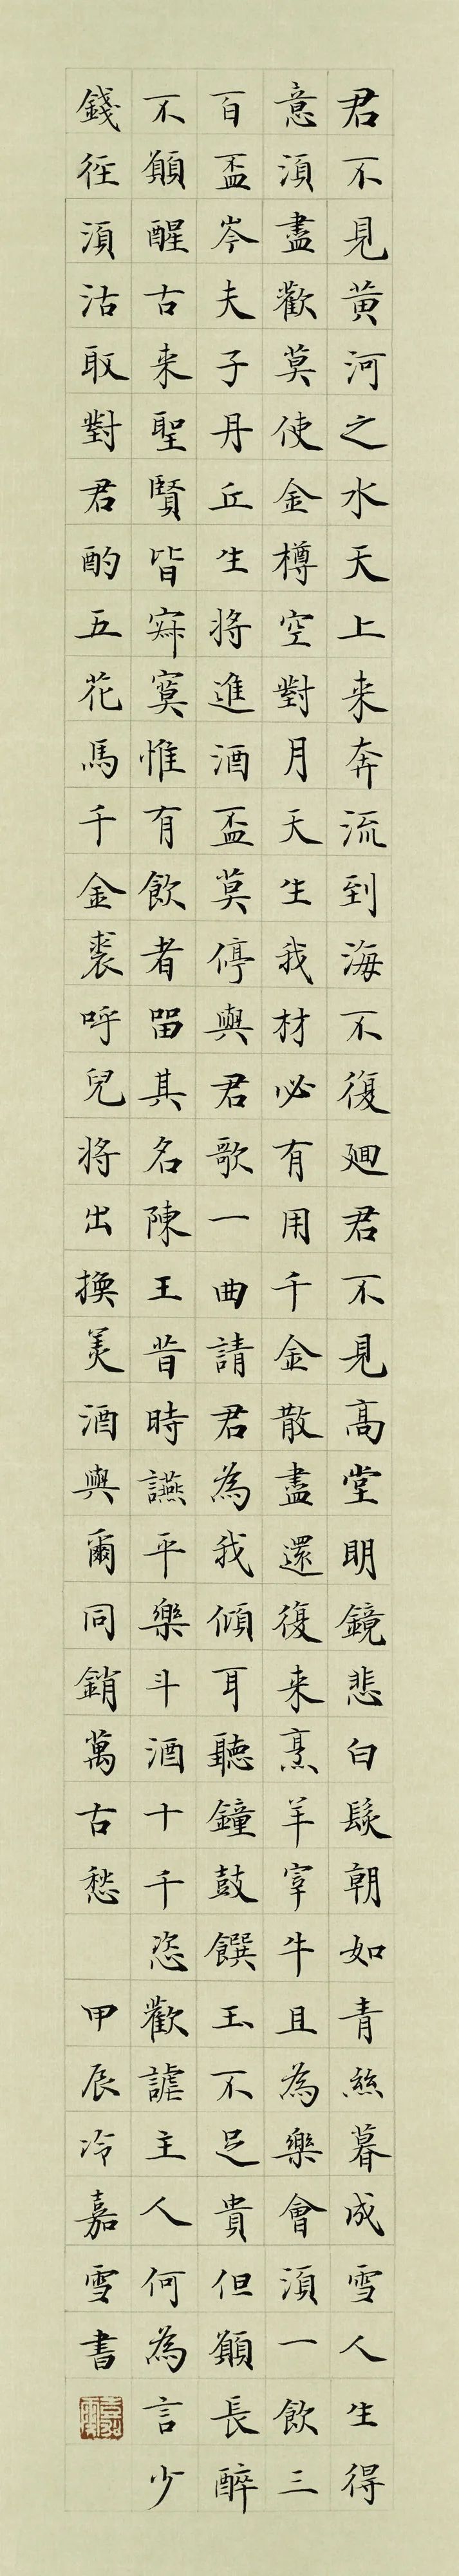 君不見黃河之水天上来奔流到海不復迴君不見高堂明鏡悲白髮朝如青絲暮成雪人生得
意須盡歡莫使金樽空對月天生我材必有用千金散盡還復来烹羊宰牛且為樂會須一飲三
百盃岑夫子丹丘生將進酒盃莫停與君歌一曲請君為我傾耳聽鐘鼓饌玉不足貴但願長醉
不願醒古来聖賢皆寂寞惟有飲者留其名陳王昔時讌平樂斗酒十千恣歡謔主人何為言少
錢徑須沽取對君酌五花馬千金裘呼兒將出換美酒與爾同銷萬古愁
甲辰冷嘉雪書
嘉雪